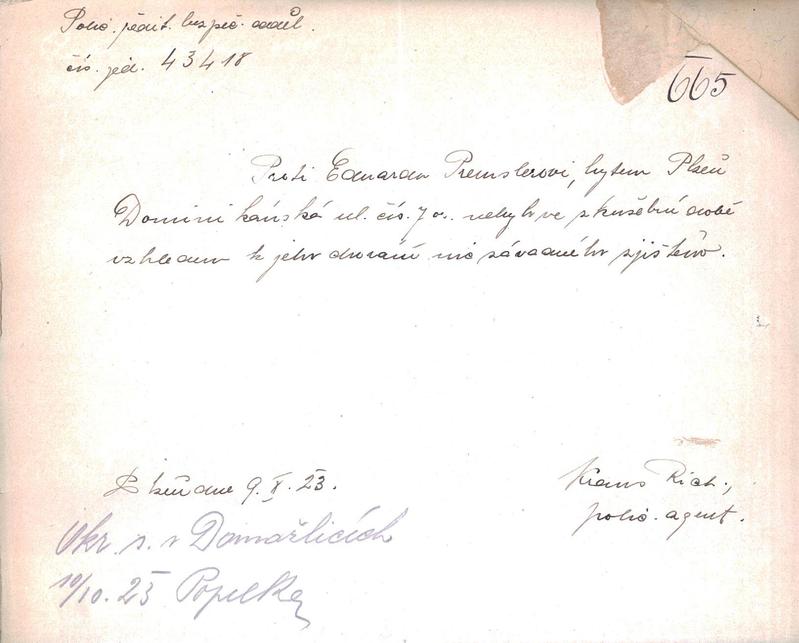 Polic. ředit. bezpeč. odděl.
čís. jed. 43418
665
Proti Eduardu Premslerovi, bytem Plzeň
Dominikánská ul. čís. 7 nebylo ve zkušební době
vzhledem k jeho chování nic závadného zjištěno.
Plzeň dne 9. X. 23.
Kraus Rich.,
polic. agent.
Okr. s. v Domažlicích
10/10. 23 Popelka